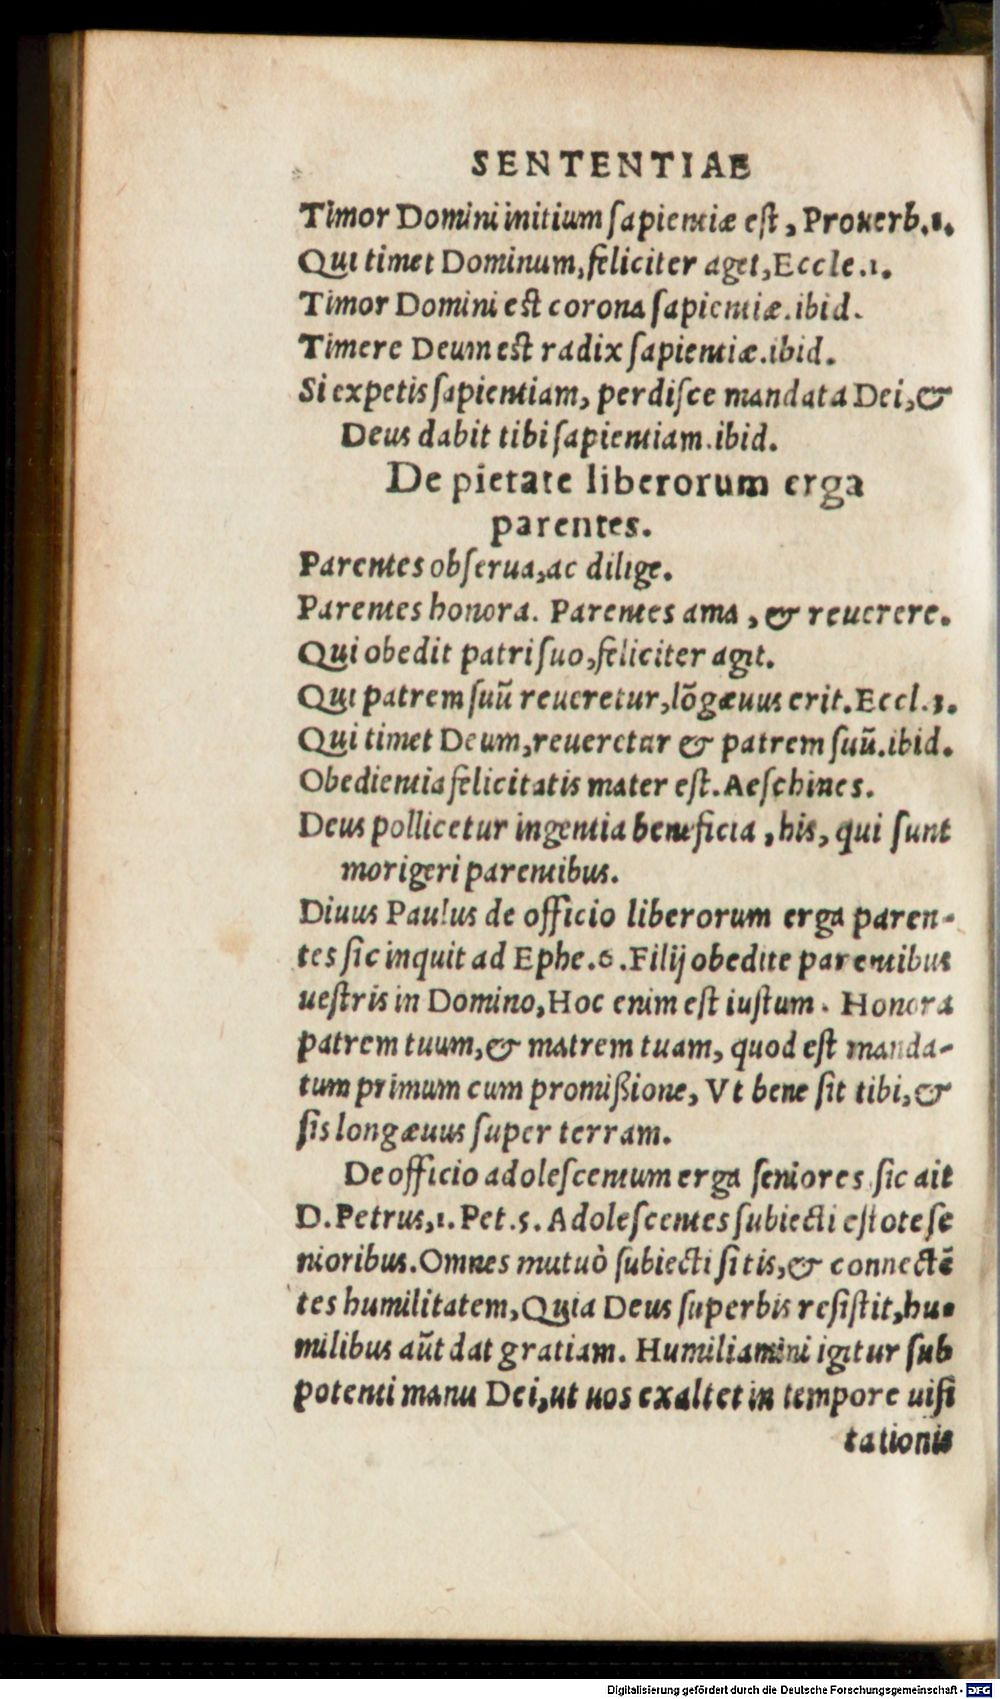 SENTENTIAE
Timor Domini initium ſapientiæ eſt, Prouerb.1.
Qui timet Dominum, feliciter aget, Eccle.1.
Timor Domini eſt corona ſapientiæ.ibid.
Timere Deum eſt radix ſapientiæ.ibid.
Si expetis ſapientiam, perdiſce mandata Dei, &
Deus dabit tibi ſapientiam.ibid.
De pietate liberorum erga
parentes.
Parentes obſerua, ac dilige.
Parentes honora. Parentes ama, & reuerere.
Qui obedit patri ſuo, feliciter agit.
Qui patrem ſuũ reueretur, lõgæuus erit. Eccl.3.
Qui timet Deum, reueretur & patrem ſuũ.ibid.
Obedientia felicitatis mater eſt. Aeſchines.
Deus pollicetur ingentia beneficia, his, qui ſunt
morigeri parentibus.
Diuus Paulus de officio liberorum erga paren-
tes ſic inquit ad Ephe.6. Filij obedite parentibus
ueſtris in Domino, Hoc enim eſt iuſtum. Honora
patrem tuum, & matrem tuam, quod eſt manda-
tum primum cum promißione, Vt bene ſit tibi, &
ſis longæuus ſuper terram.
De officio adoleſcentum erga ſeniores ſic ait
D. Petrus, 1. Pet.5. Adoleſcentes ſubiecti eſtote ſe
nioribus. Omnes mutuò ſubiecti ſitis, & connectẽ
tes humilitatem, Quia Deus ſuperbis reſiſtit, hu-
milibus aũt dat gratiam. Humiliamini igitur ſub
potenti manu Dei, ut uos exaltet in tempore uiſi
tationis
Digitalisierung gefördert durch die Deutsche Forschungsgemeinschaft - DFG